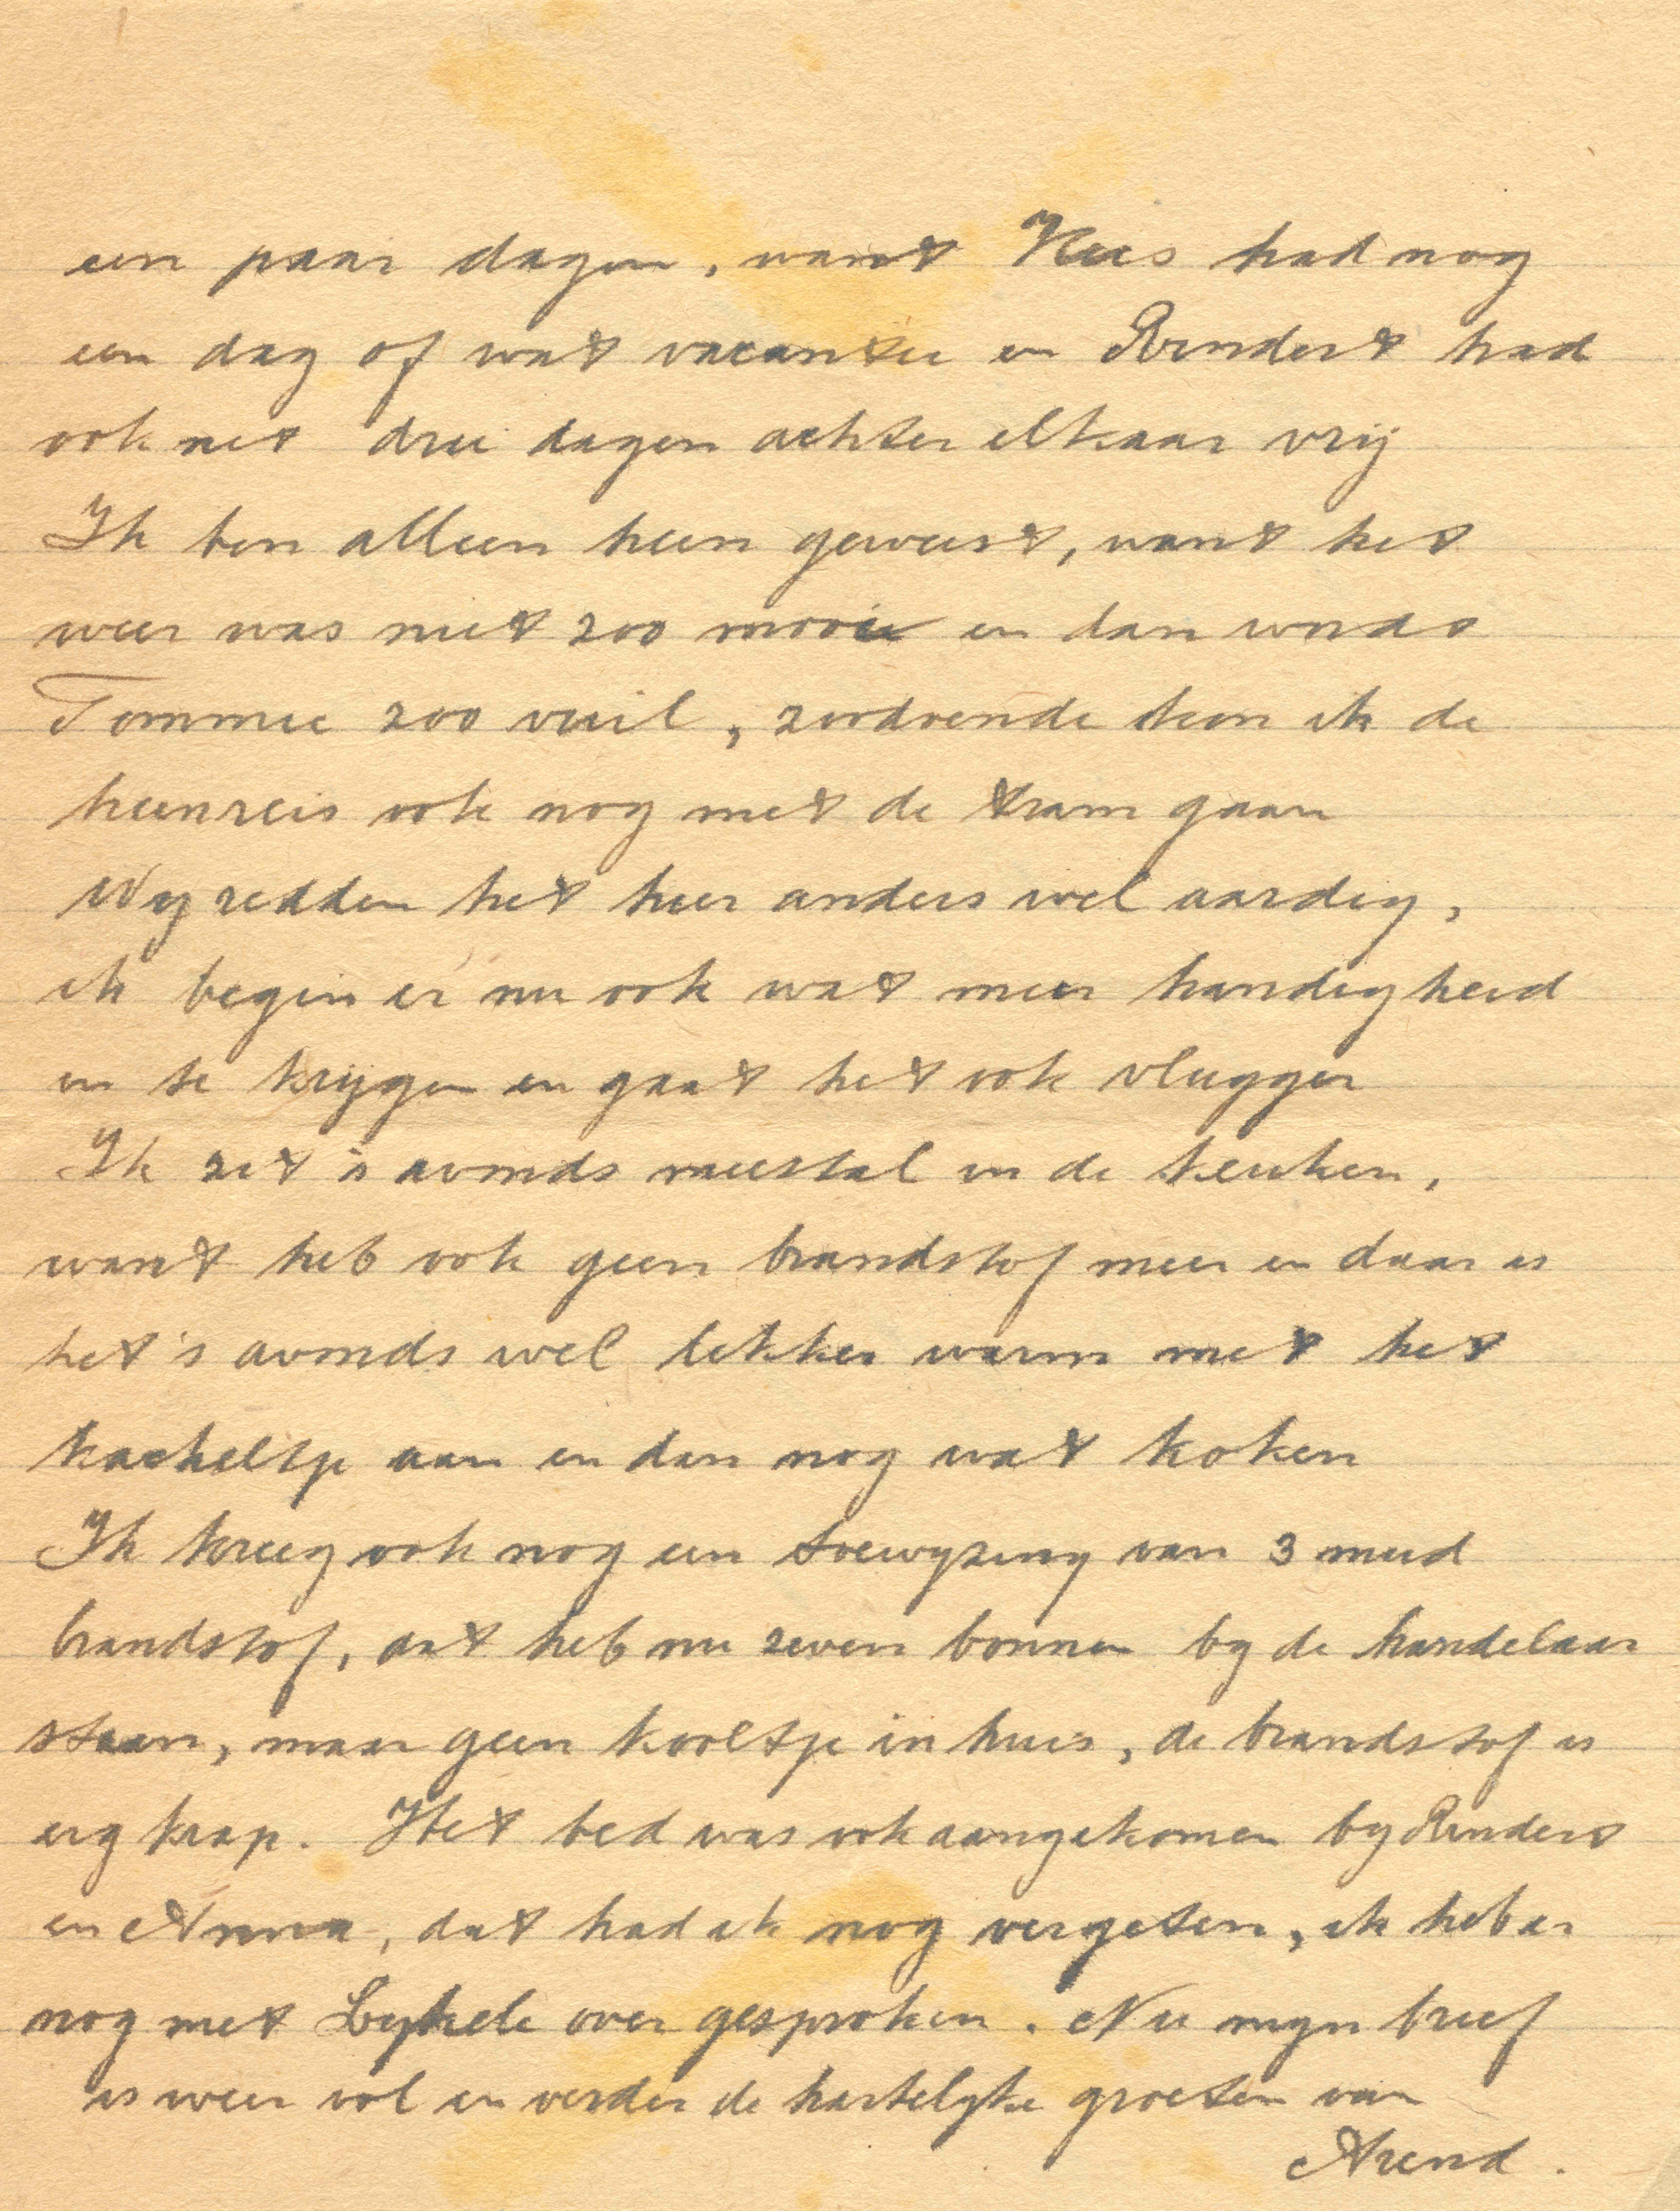 een paar dagen, want Kees had nog
een dag of wat vacantie en Rindert had
ook net drie dagen achter elkaar vrij
Ik ben alleen heen geweest, want het
weer was niet zoo mooi en dan wordt
Tommie zoo vuil, zodoende kon ik de
heenreis ook nog met de tram gaan
Wy redden het hier anders wel aardig,
ik begin er nu ook wat meer handigheid
in te krijgen en gaat het ook vlugger
Ik zit 's avonds meestal in de keuken,
want heb ook geen brandstof meer en daar is
het 's avonds wel lekker warm met het
kacheltje aan en dan nog wat koken
Ik kreeg ook nog een toewyzing van 3 mud
brandstof, dat heb nu zeven bonnen by de handelaar
staan, maar geen kooltje in huis, de brandstof is
erg krap. Het bed was ook aangekomen by Rindert
en Anna, dat had ik nog vergeten, ik heb er
nog met Lykele over gesproken. Nu myn brief
is weer vol en verder de hartelyke groeten van
Arend.